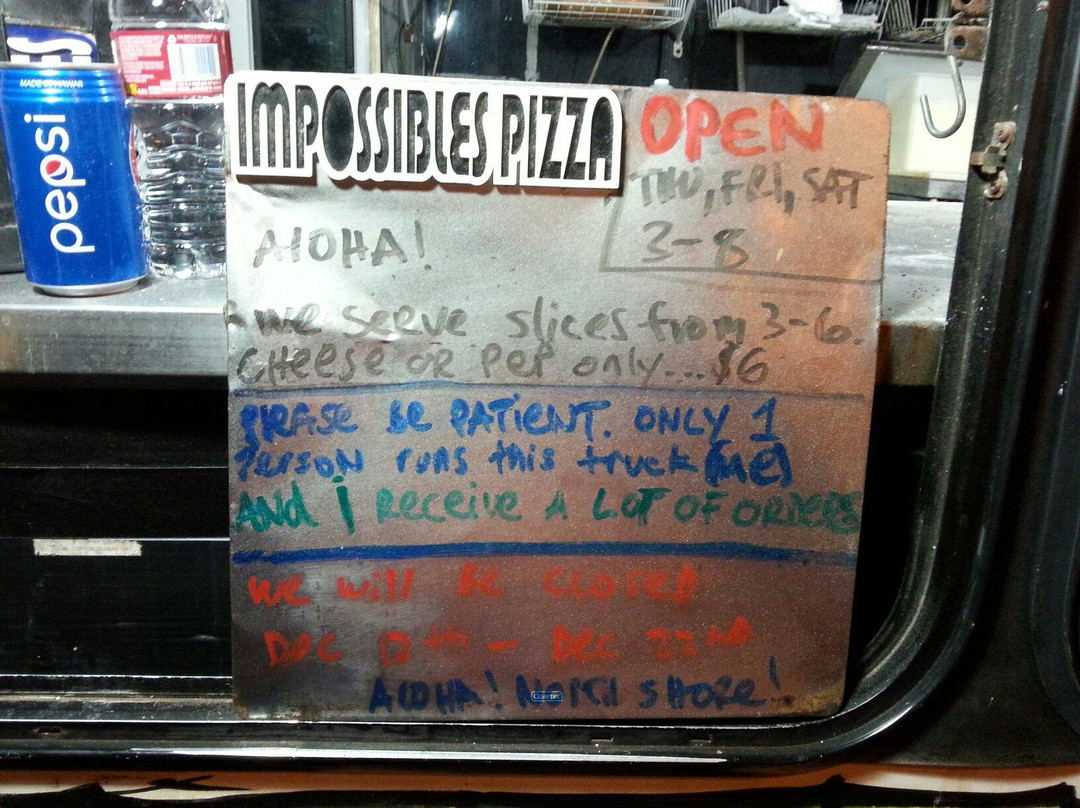 MADE IN HAWAII
pepsi
IMPOSSIBLES PIZZA
OPEN
THU, FRI, SAT
3-8
AlOHA!
we serve slices from 3-6.
CHeese or PeP only...$6
PlEASe Be PATIeNT. ONLY 1
PersoN runs this truck (me)
ANd i Receive A LOT OF ORDERS
We will Be CLOSED
Dec 12th - Dec 22nd
AlOHA! NORTH SHORE!
Quartet